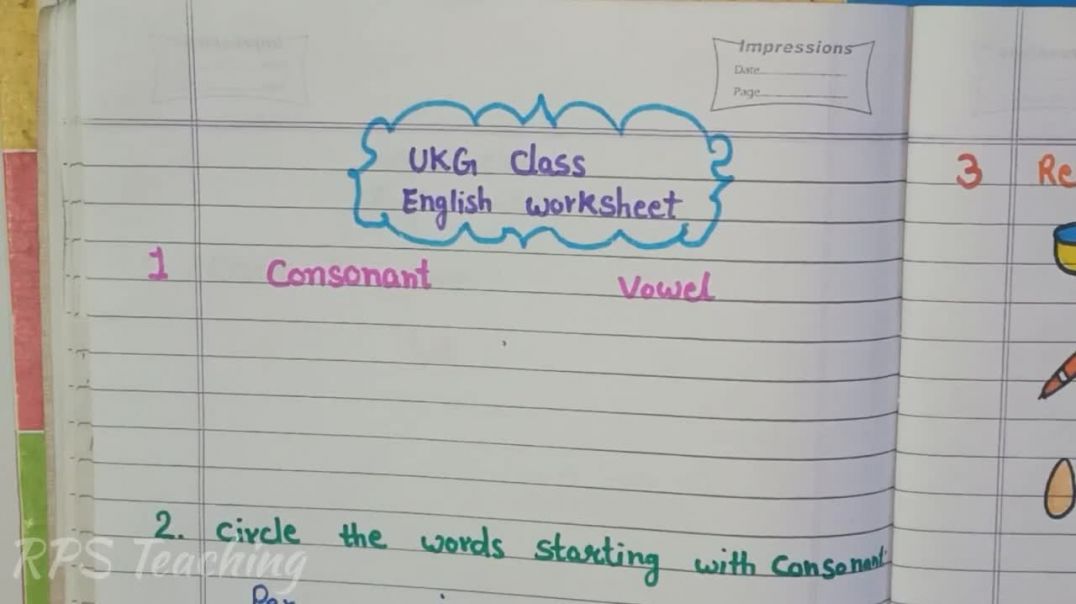 Impressions
Date
Page
UKG Class
English worksheet
1 Consonant Vowel
2. circle the words starting with Consonant
RPS Teaching
3 Re